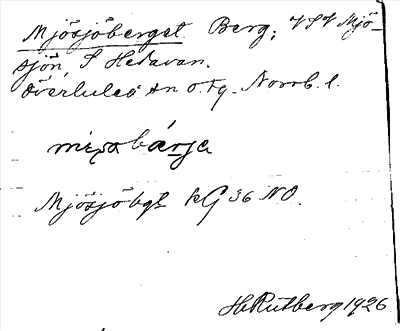 Mjösjöberget Berg; VSV Mjö-
sjön, S Hedavan.
Överluleå sn o. tg. Norrb. l.
Mjösjöbgt kG 36 NO.
H. Rutberg 1926